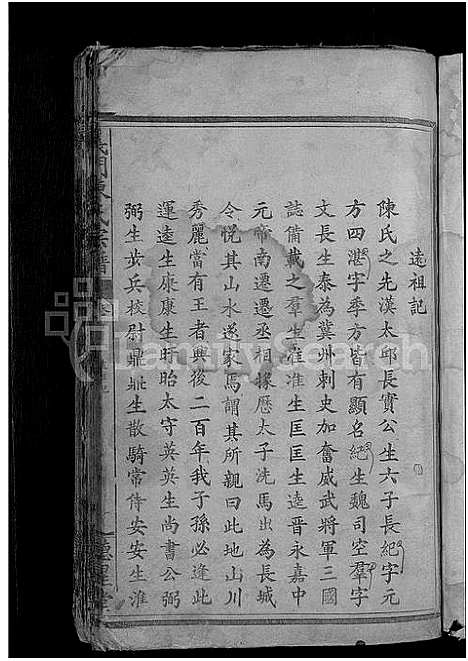 遠祖記
陳氏之先漢太邱長實公生六子長紀字元
方四湛字季方皆有顯名紀生魏司空羣字
文長生泰為冀州刺史加奮威武將軍三國
誌備載之羣生准准生匡匡生逵晉永嘉中
元帝南遷遷丞相掾歷太子洗馬出為長城
令悅其山水遂家焉謂其所親曰此地山川
秀麗當有王者興後二百年我子孫必逢此
運逵生康康生盱眙太守英英生尚書公弼
弼生步兵校尉鼎鼎生散騎常侍安安生淮
門陳氏宗譜
卷
FamilySearch